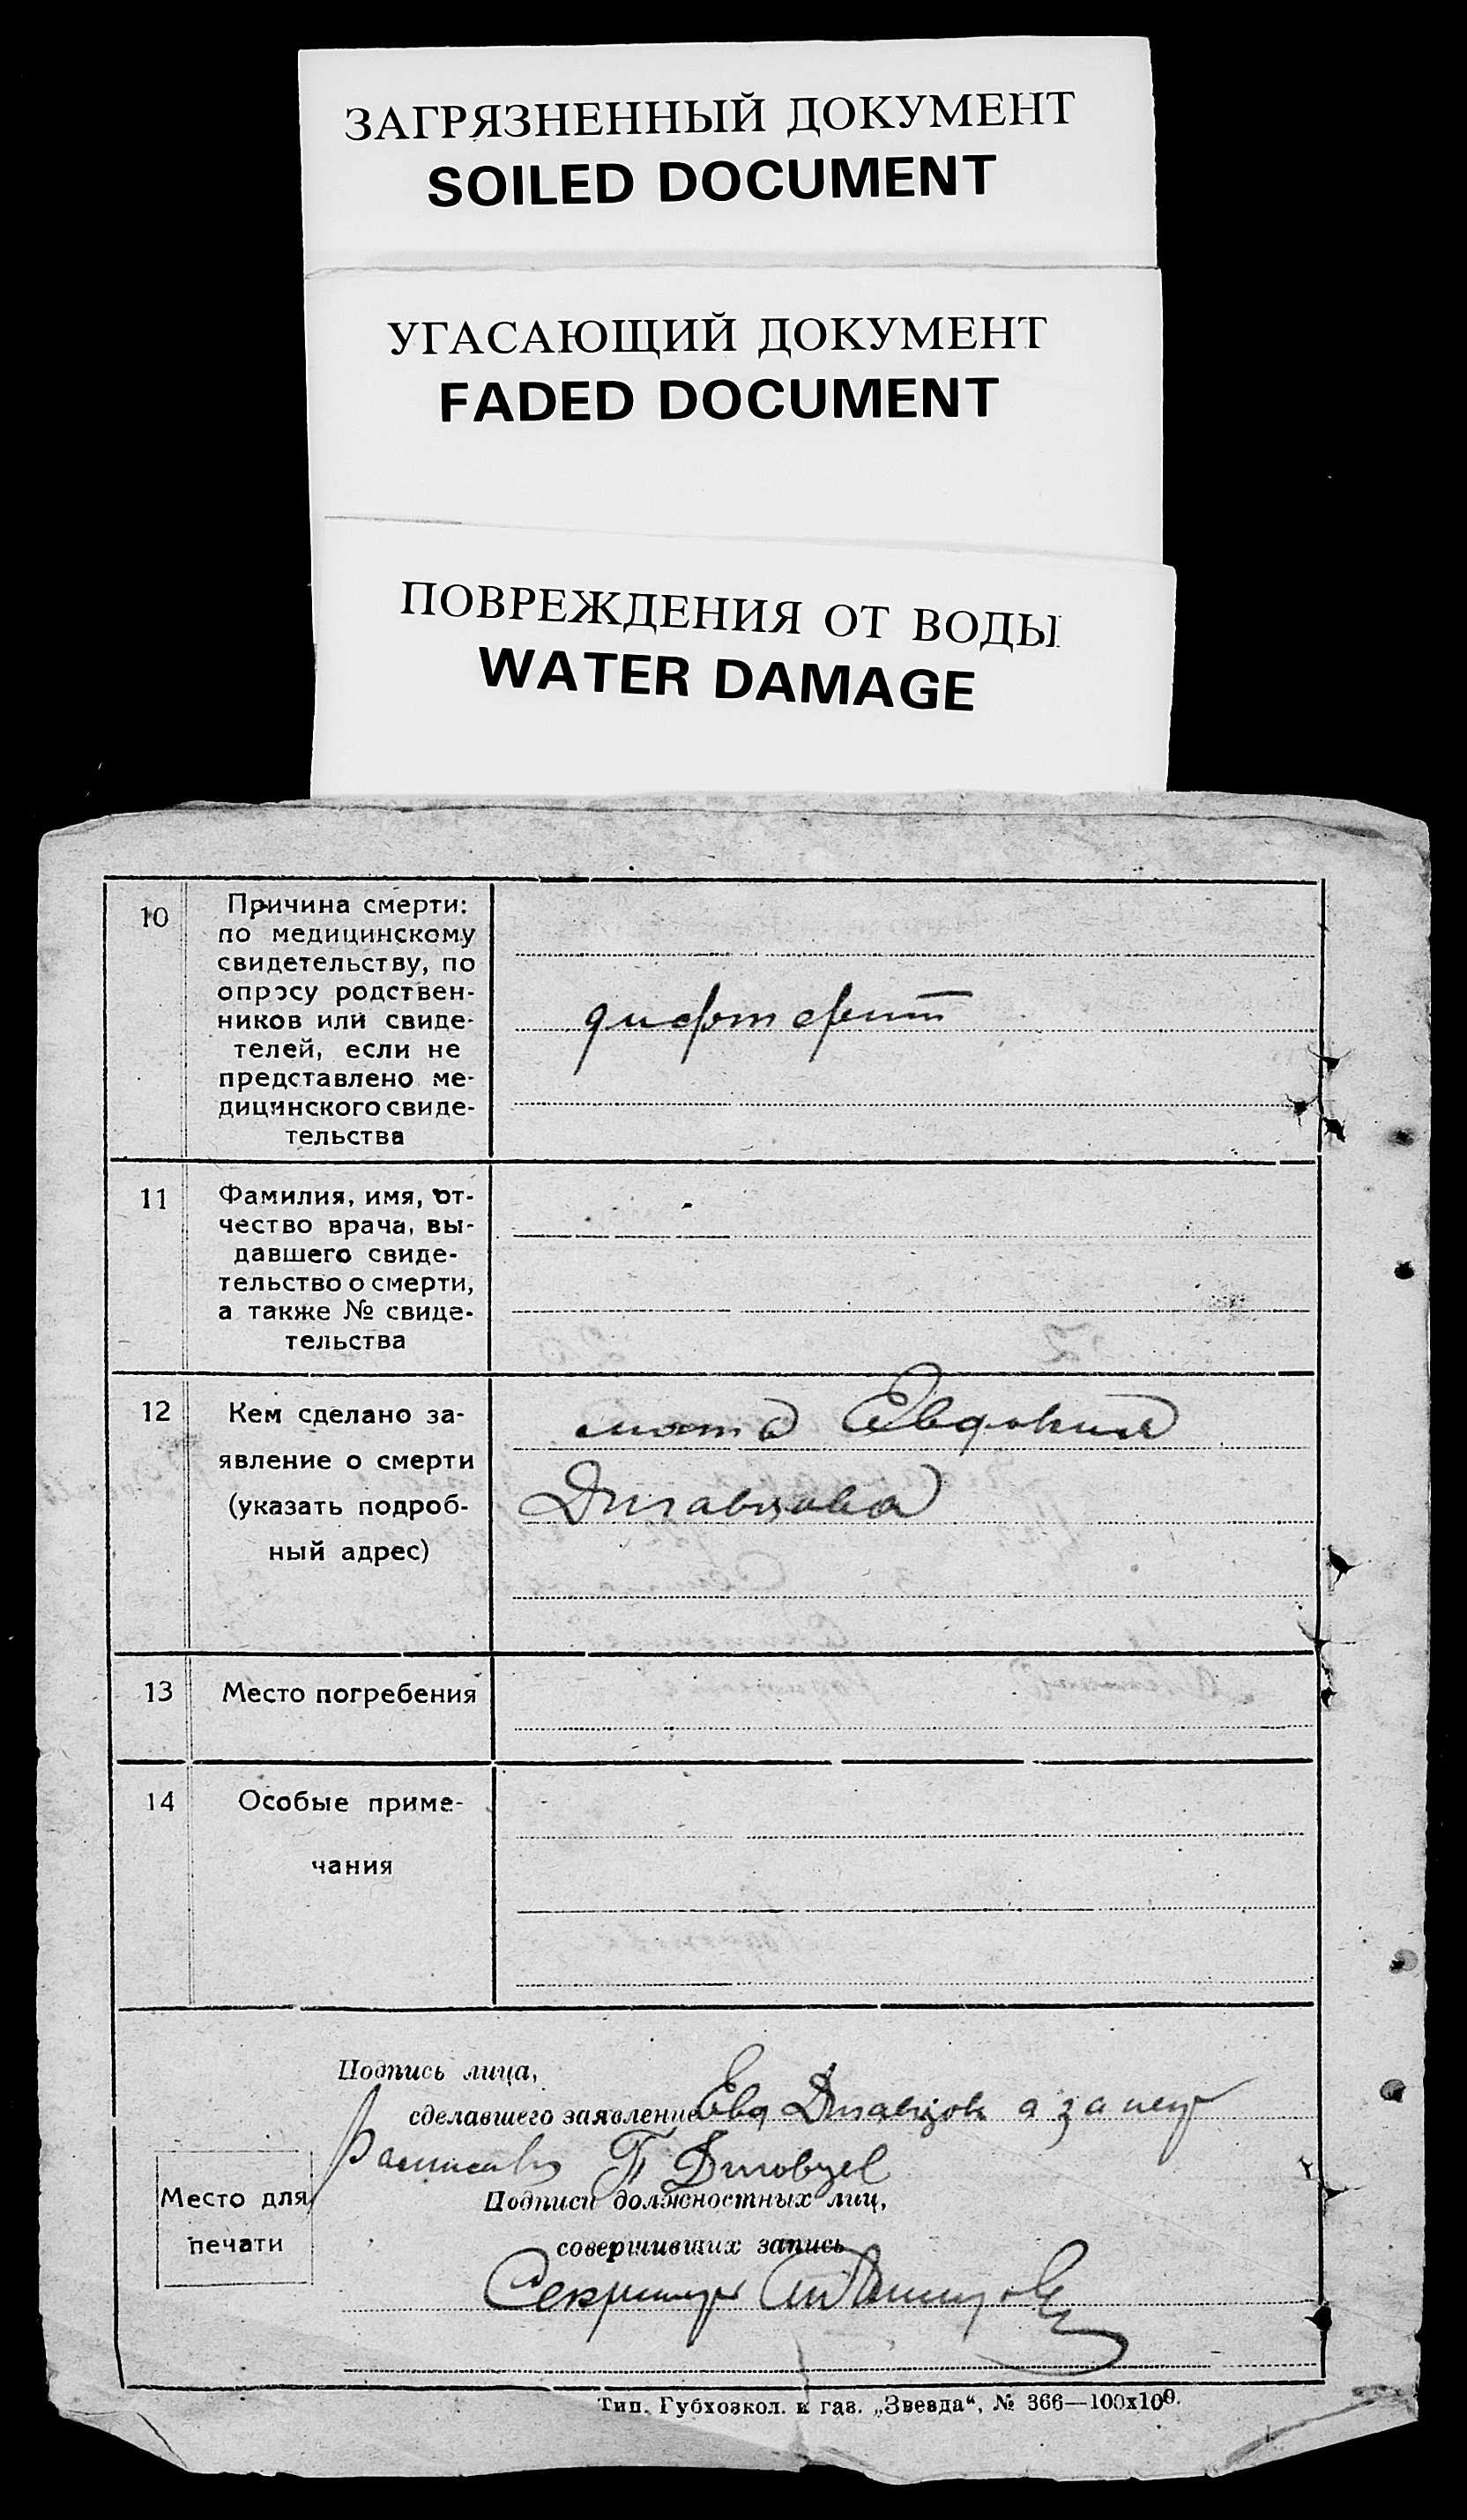 ЗАГРЯЗНЕННЫЙ ДОКУМЕНТ
SOILED DOCUMENT
УГАСАЮЩИЙ ДОКУМЕНТ
FADED DOCUMENT
ПОВРЕЖДЕНИЯ ОТ ВОДЫ
WATER DAMAGE
10
Причина смерти:
по медицинскому
свидетельству, по
опросу родствен-
ников или свиде-
телей, если не
представлено ме-
дицинского свиде-
тельства
дифтерит
11
Фамилия, имя, от-
чество врача, вы-
давшего свиде-
тельство о смерти,
а также № свиде-
тельства
12
Кем сделано за-
явление о смерти
(указать подроб-
ный адрес)
мать Евдокия
13
Место погребения
14
Особые приме-
чания
Подпись лица,
сделавшего заявление Евд а за неу
П
Место для
печати
Подписи должностных лиц,
совершивших запись
Секретарь
Тип. Губхозкол. и газ. „Звезда“, № 366—100х100.